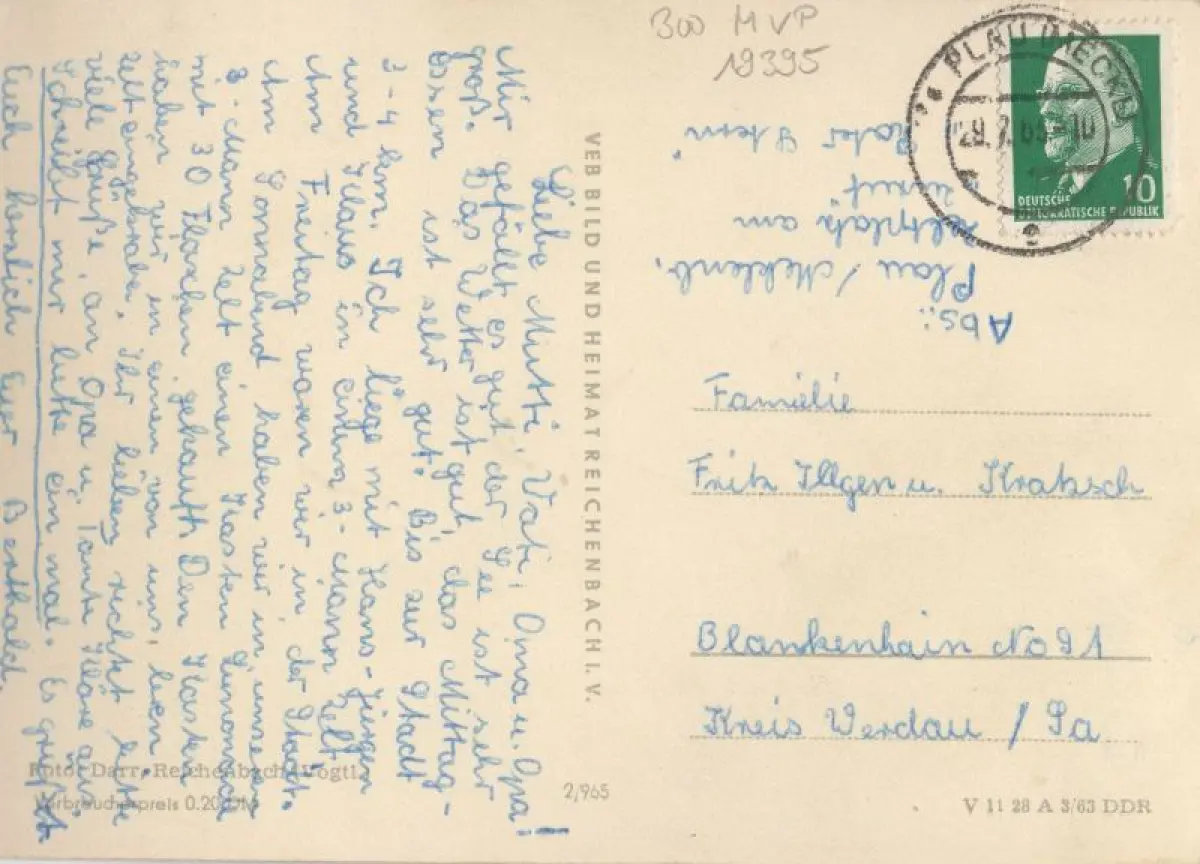 300 MVP
19395
PLAU (MECKL)
DEUTSCHE
DEMOKRATISCHE REPUBLIK
10
Abs.:
Plau / Meklenb.
Zeltplatz am
"Roter Stern"
Liebe Mutti, Vati, Oma u. Opa!
Mir gefällt es gut, der See ist sehr
groß. Das Wetter ist gut, das Mittag-
essen ist sehr gut. Bis zur Stadt
3-4 km. Ich liege mit Hans-Jürgen
und Klaus in einem 3-Mann Zelt.
Am Freitag waren wir in der Stadt.
Am Sonnabend haben wir in unserem
8-Mann Zelt einen Kasten Limonade
mit 30 Flaschen gekauft. Den Kasten
haben wir in einem von uns, leeren
Zelt eingegraben. Ihr lieben richtet bitte
viele Grüße an Opa u. Tante Kläre aus.
Schreibt mir bitte ein mal. Es grüßt
Euch herzlich Euer Berthold.
VEB BILD UND HEIMAT REICHENBACH I. V.
Familie
Fritz Illgen u. Kratzsch
Blankenhain No 91
Kreis Werdau / Sa
Foto: Darr, Reichenbach (Vogtl.)
Verbraucherpreis 0.20 DM
2/965
V 11 28 A 3/63 DDR